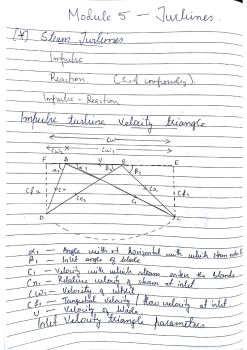 Module 5 - Turbines.
(*) Steam Turbines
Impulse
Reaction
Impulse - Reaction
Impulse turbine velocity triangle
Cω
Cω2 Cω1
F A U B E
α2 β1
Cf2
C2
C1
D C
α1 - Angle with rt horizontal with which steam
β1 - Inlet angle of blade
C1 - Velocity with which steam enters the blade
Cr1 - Relative velocity of steam at inlet
Cω1 - Velocity of whirl
Cf1 - Tangential velocity / flow velocity at inlet
U - Velocity of blade
Inlet velocity triangle parameters